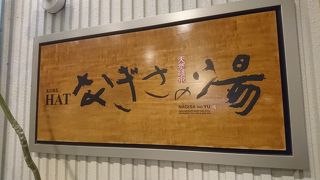 KOBE
HAT なぎさの湯
天然温泉
NAGISA no YU